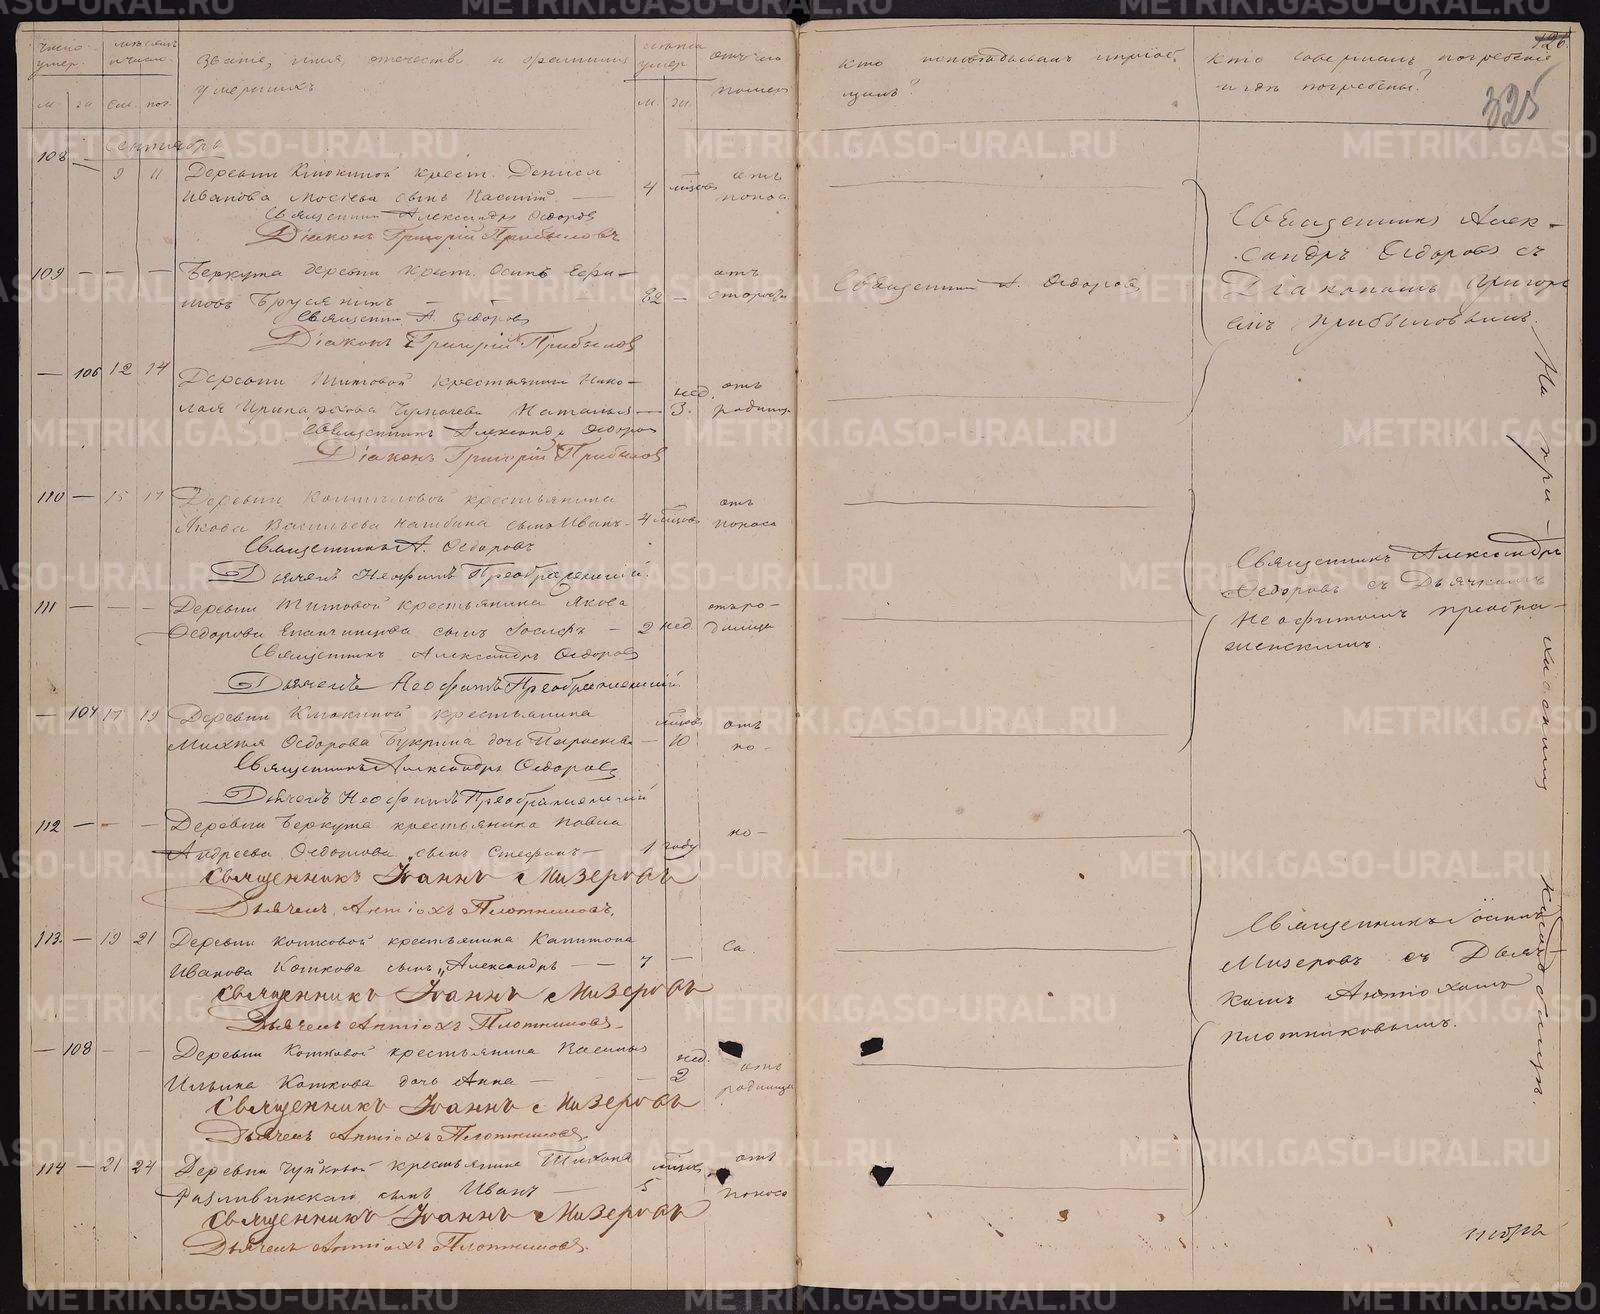 число умер.
мѣсяцъ и число.
Званіе, имя, отечество и фамилія умершихъ
лѣта умер
отъ чего померъ
кто исповѣдывалъ и пріобщилъ?
кто совершалъ погребеніе и гдѣ погребены?
126.
325
м. ж. см. пог. м. ж.
Сентябрь
108 — 9 11 Деревни Клюкиной крест. Дениса
Иванова сынъ Василій — 4 мѣсяц отъ поноса
Священникъ Александръ Ѳедоровъ
Діаконъ Григорій Прибыловъ
109 — — — Беркута деревни крест. Осипъ Ефи-
мовъ Брусянинъ — — 82 — отъ старости
Священникъ А. Ѳедоровъ
Священникъ А. Ѳедоровъ
Діаконъ Григорій Прибыловъ
— 106 12 14 Деревни Титовой крестьянина Нико-
лая Наталья — нед. 3. отъ родимца
Священникъ Александръ Ѳедоровъ
Діаконъ Григорій Прибыловъ
Священникъ Алек-
сандръ Ѳедоровъ съ
Діакономъ Григорі-
емъ Прибыловымъ.
110 — 15 17 Деревни крестьянина
Якова Васильева сынъ Иванъ — 4 мѣсяц отъ поноса
Священникъ А. Ѳедоровъ
Дьячекъ Неофитъ Преображенскій.
111 — — — Деревни Титовой крестьянина Якова
Ѳедорова Епанчинцова сынъ Іосифъ — 2 нед. отъ родимца
Священникъ Александръ Ѳедоровъ
Дьячекъ Неофитъ Преображенскій
— 107 17 19 Деревни Клюкиной крестьянина
Михея Ѳедорова Букрина дочь — мѣсяц 10 отъ по-
Священникъ Александръ Ѳедоровъ
Дьячекъ Неофитъ Преображенскій
Священникъ Александръ
Ѳедоровъ съ Дьячкомъ
Неофитомъ Преобра-
женскимъ.
112 — — — Деревни Беркута крестьянина Павла
Андреева Ѳедотова сынъ Стефанъ — 1 году но-
Священникъ Іоаннъ Мизеровъ
Дьячекъ Антіохъ Плотниковъ.
113. — 19 21 Деревни Котковой крестьянина Капитона
Иванова Коткова сынъ Александръ — — 7 — са
Священникъ Іоаннъ Мизеровъ
Дьячекъ Антіохъ Плотниковъ
— 108 — — Деревни Котковой крестьянина Василья
Ильина Коткова дочь Анна — — нед. 2 отъ родимца
Священникъ Іоаннъ Мизеровъ
Дьячекъ Антіохъ Плотниковъ.
114 — 21 24 Деревни крестьянина Тихона
сынъ Иванъ — мѣсяц 5 отъ поноса
Священникъ Іоаннъ Мизеровъ
Дьячекъ Антіохъ Плотниковъ.
Священникъ Іоаннъ
Мизеровъ съ Дьяч-
комъ Антіохомъ
Плотниковымъ.
На при-
ходскомъ
кладбищѣ.
METRIKI.GASO-URAL.RU